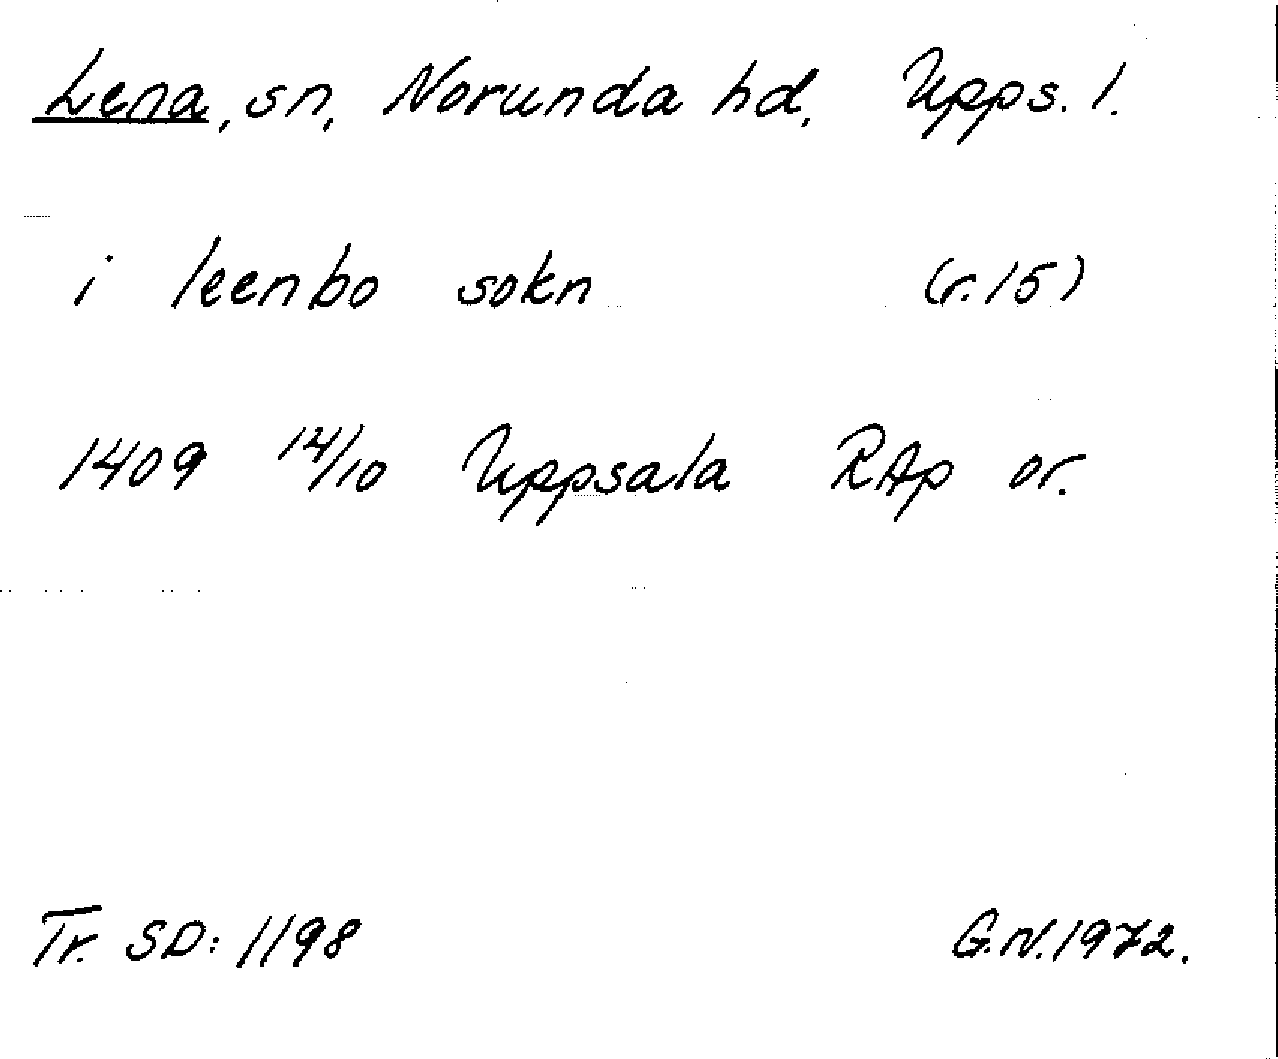 Lena, sn, Norunda hd, Upps. l.
i leenbo sokn (r. 15)
1409 14/10 Uppsala RAp or.
Tr. SD: 1198 G.N. 1972.